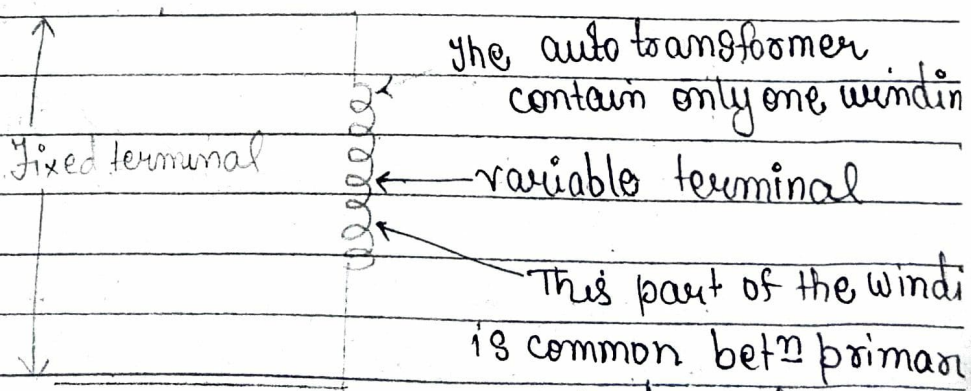 The auto transformer
contain only one windin
Fixed terminal
variable terminal
This part of the windi
is common betn primar